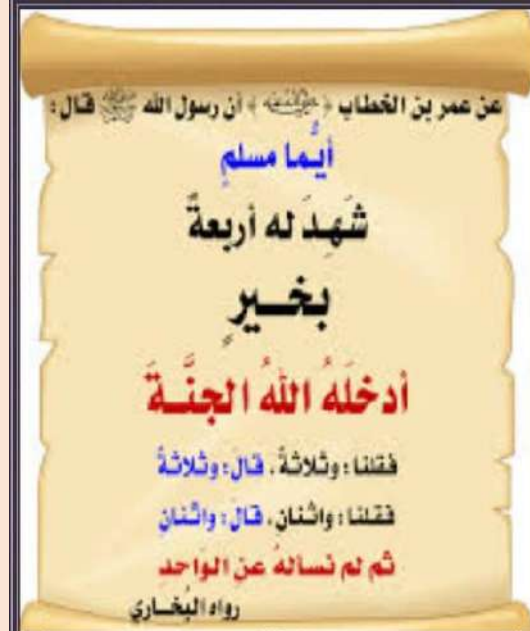 عن عمر بن الخطاب ﴿رضي الله عنه﴾ أن رسول الله ﷺ قال :
أيُّما مسلمٍ
شَهِدَ له أربعةٌ
بخــيرٍ
أدخلَهُ اللهُ الجنَّــةَ
فقلنا : وثلاثةٌ ، قال : وثلاثةٌ
فقلنا : واثنانِ ، قال : واثنانِ
ثم لم نسألهُ عن الوَاحِد
رواه البُخــاري